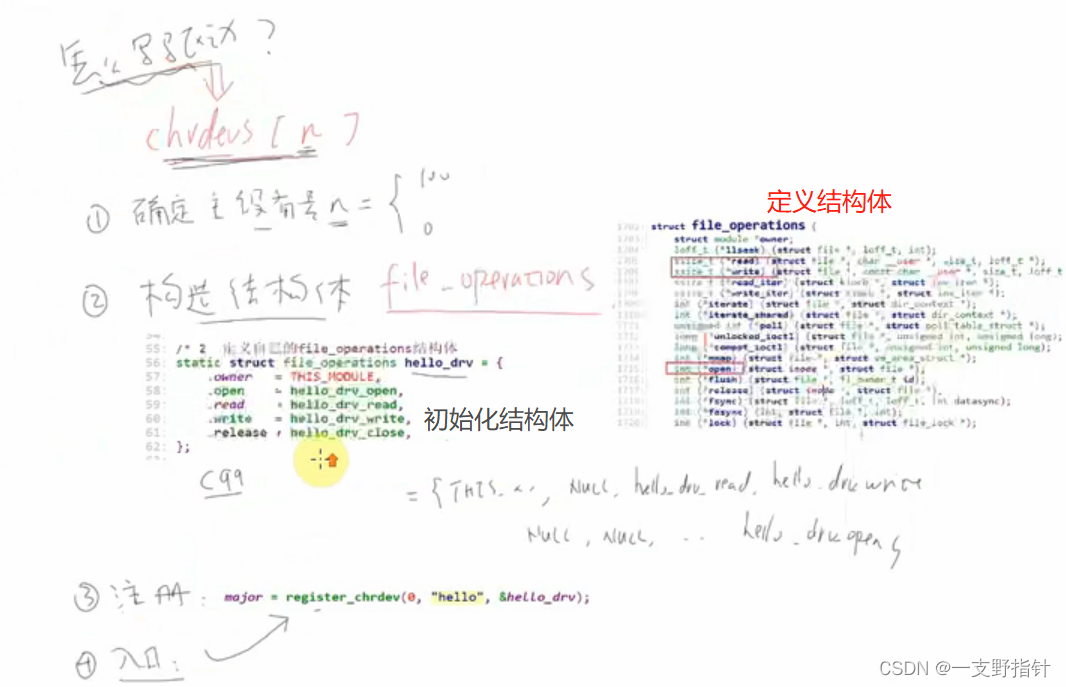 怎么写驱动？
chrdevs [ n ]
① 确定主设备号 n = { 100
0
② 构造结构体 file_operations
定义结构体
struct file_operations {
struct module *owner;
loff_t (*llseek) (struct file *, loff_t, int);
ssize_t (*read) (struct file *, char __user *, size_t, loff_t *);
ssize_t (*write) (struct file *, const char __user *, size_t, loff_t
ssize_t (*read_iter) (struct kiocb *, struct iov_iter *);
ssize_t (*write_iter) (struct kiocb *, struct iov_iter *);
int (*iterate) (struct file *, struct dir_context *);
int (*iterate_shared) (struct file *, struct dir_context *);
unsigned int (*poll) (struct file *, struct poll_table_struct *);
long (*unlocked_ioctl) (struct file *, unsigned int, unsigned long);
long (*compat_ioctl) (struct file *, unsigned int, unsigned long);
int (*mmap) (struct file *, struct vm_area_struct *);
int (*open) (struct inode *, struct file *);
int (*flush) (struct file *, fl_owner_t id);
int (*release) (struct inode *, struct file *);
int (*fsync) (struct file *, loff_t, loff_t, int datasync);
int (*fasync) (int, struct file *, int);
int (*lock) (struct file *, int, struct file_lock *);
55: /* 2 定义自己的file_operations结构体
56: static struct file_operations hello_drv = {
57: .owner = THIS_MODULE,
58: .open = hello_drv_open,
59: .read = hello_drv_read,
60: .write = hello_drv_write,
61: .release = hello_drv_close,
62: };
初始化结构体
C99
= { THIS..., NULL, hello_drv_read, hello_drv_write
NULL, NULL, ... hello_drv_open }
③ 注册: major = register_chrdev(0, "hello", &hello_drv);
④ 入口:
CSDN @一支野指针